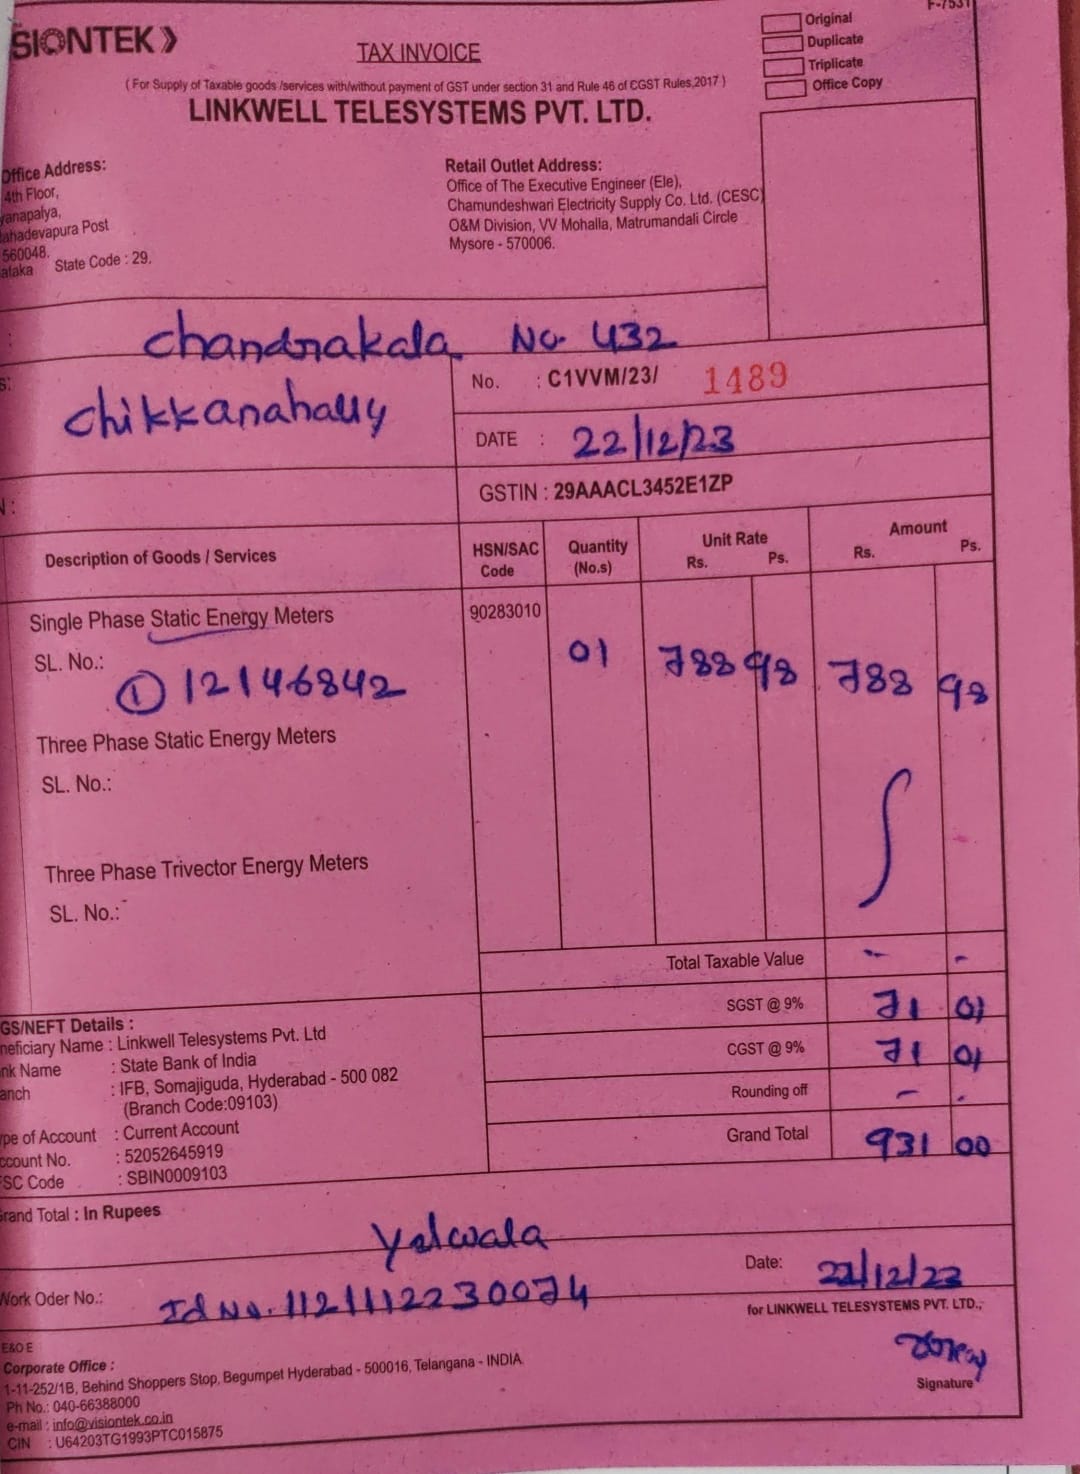 SIONTEK
F-7531
TAX INVOICE
Original
Duplicate
Triplicate
Office Copy
( For Supply of Taxable goods /services with/without payment of GST under section 31 and Rule 46 of CGST Rules,2017 )
LINKWELL TELESYSTEMS PVT. LTD.
Office Address:
4th Floor,
yanapalya,
ahadevapura Post
560048.
ataka State Code : 29.
Retail Outlet Address:
Office of The Executive Engineer (Ele),
Chamundeshwari Electricity Supply Co. Ltd. (CESC)
O&M Division, VV Mohalla, Matrumandali Circle
Mysore - 570006.
: Chandrakala No 432
s: Chikkanahally
No. : C1VVM/23/ 1489
DATE : 22/12/23
GSTIN : 29AAACL3452E1ZP
Description of Goods / Services HSN/SAC Code Quantity (No.s) Unit Rate Rs. Ps. Amount Rs. Ps.
Single Phase Static Energy Meters 90283010
SL. No.: 01 788 98 788 98
① 12146842
Three Phase Static Energy Meters
SL. No.:
Three Phase Trivector Energy Meters
SL. No.:
Total Taxable Value - -
SGST @ 9% 71 01
CGST @ 9% 71 01
Rounding off - -
Grand Total 931 00
GS/NEFT Details :
neficiary Name : Linkwell Telesystems Pvt. Ltd
nk Name : State Bank of India
anch : IFB, Somajiguda, Hyderabad - 500 082
(Branch Code:09103)
pe of Account : Current Account
ccount No. : 52052645919
SC Code : SBIN0009103
Grand Total : In Rupees
Yelwala
Work Oder No.: Id No. 1121112230074
Date: 22/12/23
for LINKWELL TELESYSTEMS PVT. LTD.,
Signature
E&O E
Corporate Office :
1-11-252/1B, Behind Shoppers Stop, Begumpet Hyderabad - 500016, Telangana - INDIA
Ph No.: 040-66388000
e-mail : info@visiontek.co.in
CIN : U64203TG1993PTC015875